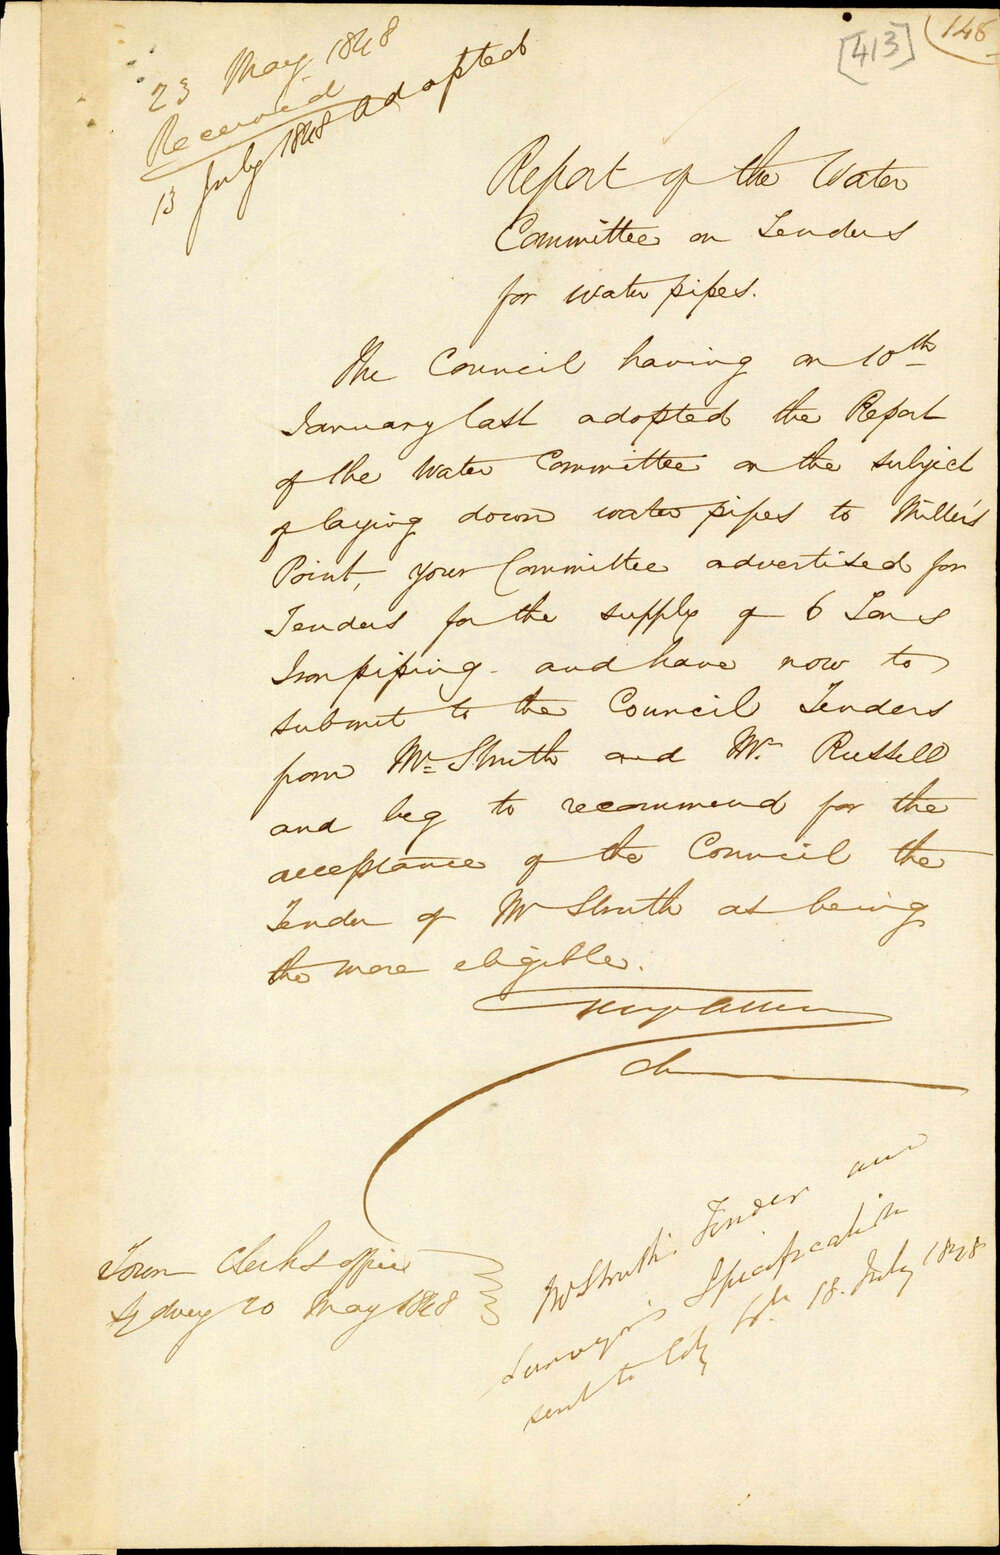 [413]
148
23 May 1848
Received
13 July 1848 adopted
Report of the Water
Committee on Tenders
for water pipes.
The Council having on 10th
January last adopted the Report
of the Water Committee on the subject
of laying down water pipes to Miller's
Point, your Committee advertised for
Tenders for the supply of 6 Tons
Iron piping - and have now to
submit to the Council Tenders
from Mr Struth and Mr. Russell
and beg to recommend for the
acceptance of the Council the
Tender of Mr Struth as being
the more eligible.
Town Clerks office
Sydney 20 May 1848
Mr Struth's Tender and
Surveyor's Specification
sent to City 18. July 1848